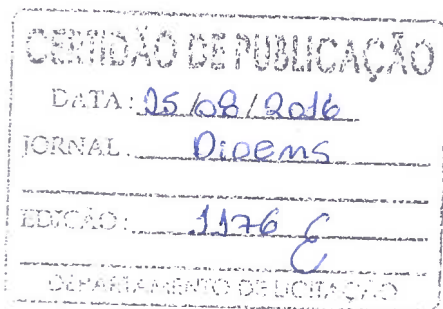 CERTIDÃO DE PUBLICAÇÃO
DATA: 25/08/2016
JORNAL: Dioems
EDIÇÃO: 1176
DEPARTAMENTO DE LICITAÇÃO